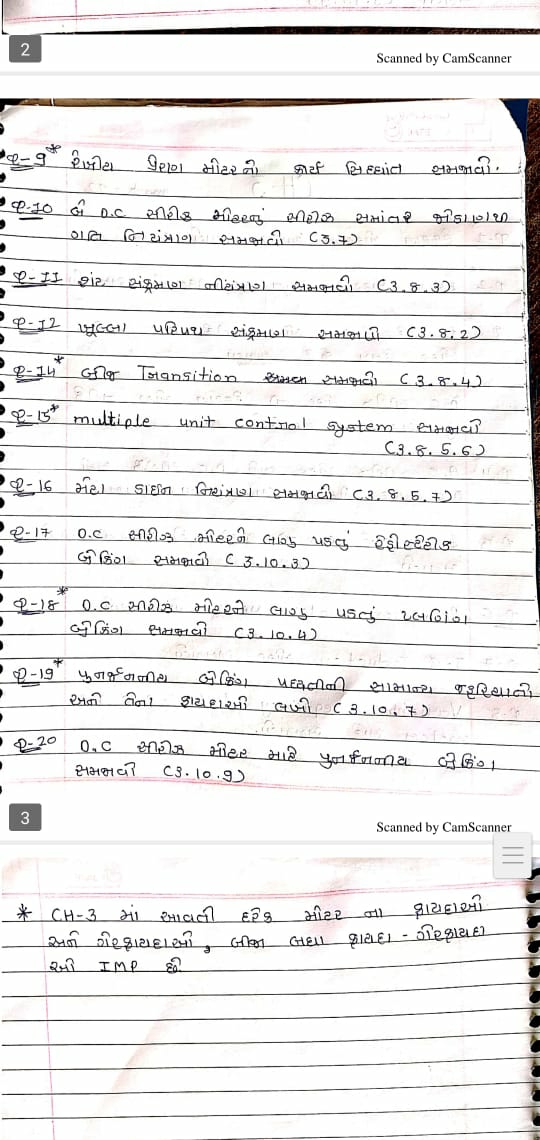 2
Scanned by CamScanner
Q-9* રેખીય પ્રેરણ મોટરનો કાર્ય સિદ્ધાંત સમજાવો.
Q-10 બે D.C સીરીઝ મોટરનું સીરીઝ સમાંતર જોડાણથી
ગતિ નિયંત્રણ સમજાવો (3.7)
Q-11 શંટ સંક્રમણ નીયંત્રણ સમજાવો (3.8.3)
Q-12 ખુલ્લા પરિપથ સંક્રમણ સમજાવો (3.8.2)
Q-14* બ્રીજ Transition સમજાવો (3.8.4)
Q-15* multiple unit control system સમજાવો
(3.8.5.6)
Q-16 મેટા ડાઈન નિયંત્રણ સમજાવો (3.8.5.7)
Q-17 D.C સીરીઝ મોટરને લાગુ પડતું રેહીસ્ટેટીક
બ્રેકિંગ સમજાવો (3.10.3)
Q-18* D.C સીરીઝ મોટરને લાગુ પડતું પ્લગિંગ
બ્રેકિંગ સમજાવો (3.10.4)
Q-19* પુનર્જનનીય બ્રેકિંગ પદ્ધતીની સામાન્ય જરૂરિયાતો
અને તેના ફાયદાઓ લખો (3.10.7)
Q-20 D.C સીરીઝ મોટર માટે પુનર્જનનીય બ્રેકિંગ
સમજાવો (3.10.9)
3
Scanned by CamScanner
* CH-3 માં આવતી દરેક મોટર ના ફાયદાઓ
અને ગેરફાયદાઓ, બીજા બધા ફાયદા - ગેરફાયદા
ઓ IMP છે